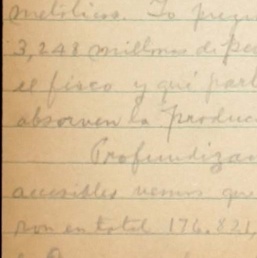 metálicos. Yo pregu
3,248 millones de pes
el fisco y qué part
absorven la produc
Profundizan
accesibles vemos que
ron en total 176.821,